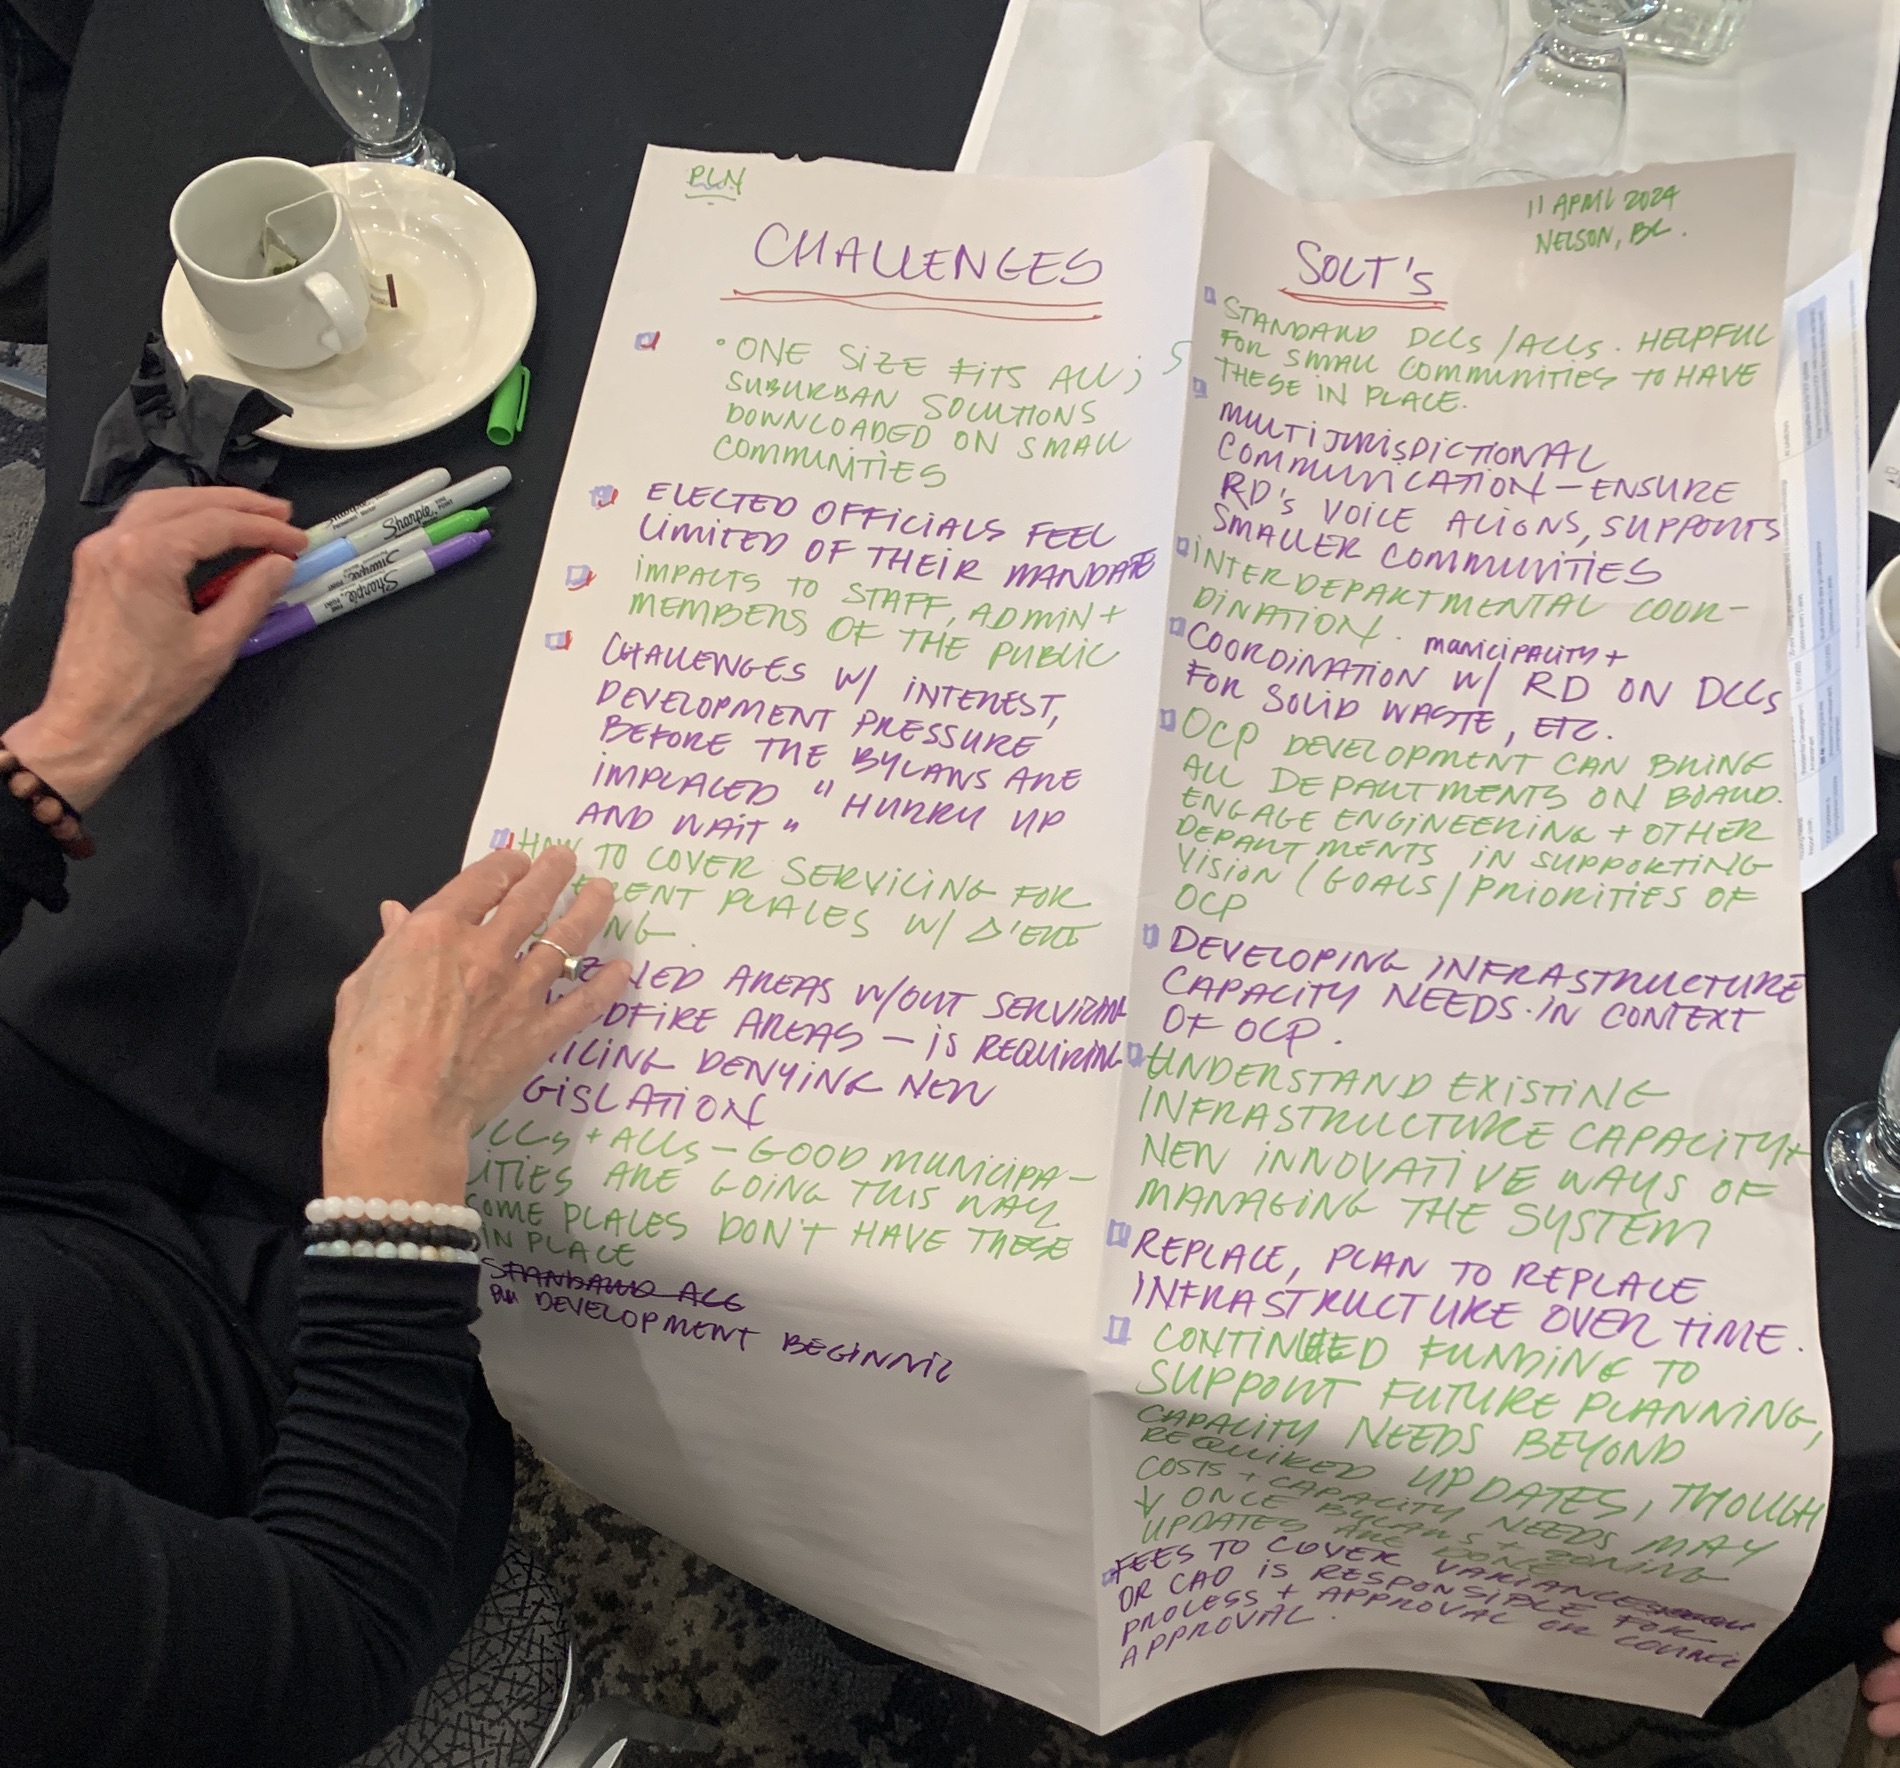 PLN
11 APRIL 2024
NELSON, BC.
CHALLENGES
• ONE SIZE FITS ALL; S
SUBURBAN SOLUTIONS
DOWNLOADED ON SMALL
COMMUNITIES
ELECTED OFFICIALS FEEL
LIMITED OF THEIR MANDATE
IMPACTS TO STAFF, ADMIN +
MEMBERS OF THE PUBLIC
CHALLENGES W/ INTEREST,
DEVELOPMENT PRESSURE
BEFORE THE BYLAWS ARE
IMPLACED "HURRY UP
AND WAIT"
HOW TO COVER SERVICING FOR
ERENT PLACES W/ Δ'ENT
NG.
NED AREAS W/OUT SERVICING
DFIRE AREAS — IS REQUIRING
DENYING NEW
GISLATION
DCCs + ACCs — GOOD MUNICIPA-
ITIES ARE GOING THIS WAY
OME PLACES DON'T HAVE THESE
IN PLACE
STANDARD ACC
DEVELOPMENT BEGINNIG
SOLT'S
STANDARD DCCs / ACCs. HELPFUL
FOR SMALL COMMUNITIES TO HAVE
THESE IN PLACE.
MULTIJURISDICTIONAL
COMMUNICATION — ENSURE
RD'S VOICE ALIGNS, SUPPORTS
SMALLER COMMUNITIES
INTERDEPARTMENTAL COOR-
DINATION.
MUNICIPALITY +
COORDINATION W/ RD ON DCCs
FOR SOLID WASTE, ETC.
OCP DEVELOPMENT CAN BRING
ALL DEPARTMENTS ON BOARD.
ENGAGE ENGINEERING + OTHER
DEPARTMENTS IN SUPPORTING
VISION / GOALS / PRIORITIES OF
OCP
DEVELOPING INFRASTRUCTURE
CAPACITY NEEDS. IN CONTEXT
OF OCP.
UNDERSTAND EXISTING
INFRASTRUCTURE CAPACITY +
NEW INNOVATIVE WAYS OF
MANAGING THE SYSTEM
REPLACE, PLAN TO REPLACE
INFRASTRUCTURE OVER TIME.
CONTINUED FUNDING TO
SUPPORT FUTURE PLANNING,
CAPACITY NEEDS BEYOND
REQUIRED UPDATES, THOUGH
COSTS + CAPACITY NEEDS MAY
↓ ONCE BYLAWS + ZONING
UPDATES ARE DONE
FEES TO COVER VARIANCES
OR CAO IS RESPONSIBLE FOR
PROCESS + APPROVAL OR COUNCIL
APPROVAL.
Sharpie
Sharpie
Sharpie
Sharpie